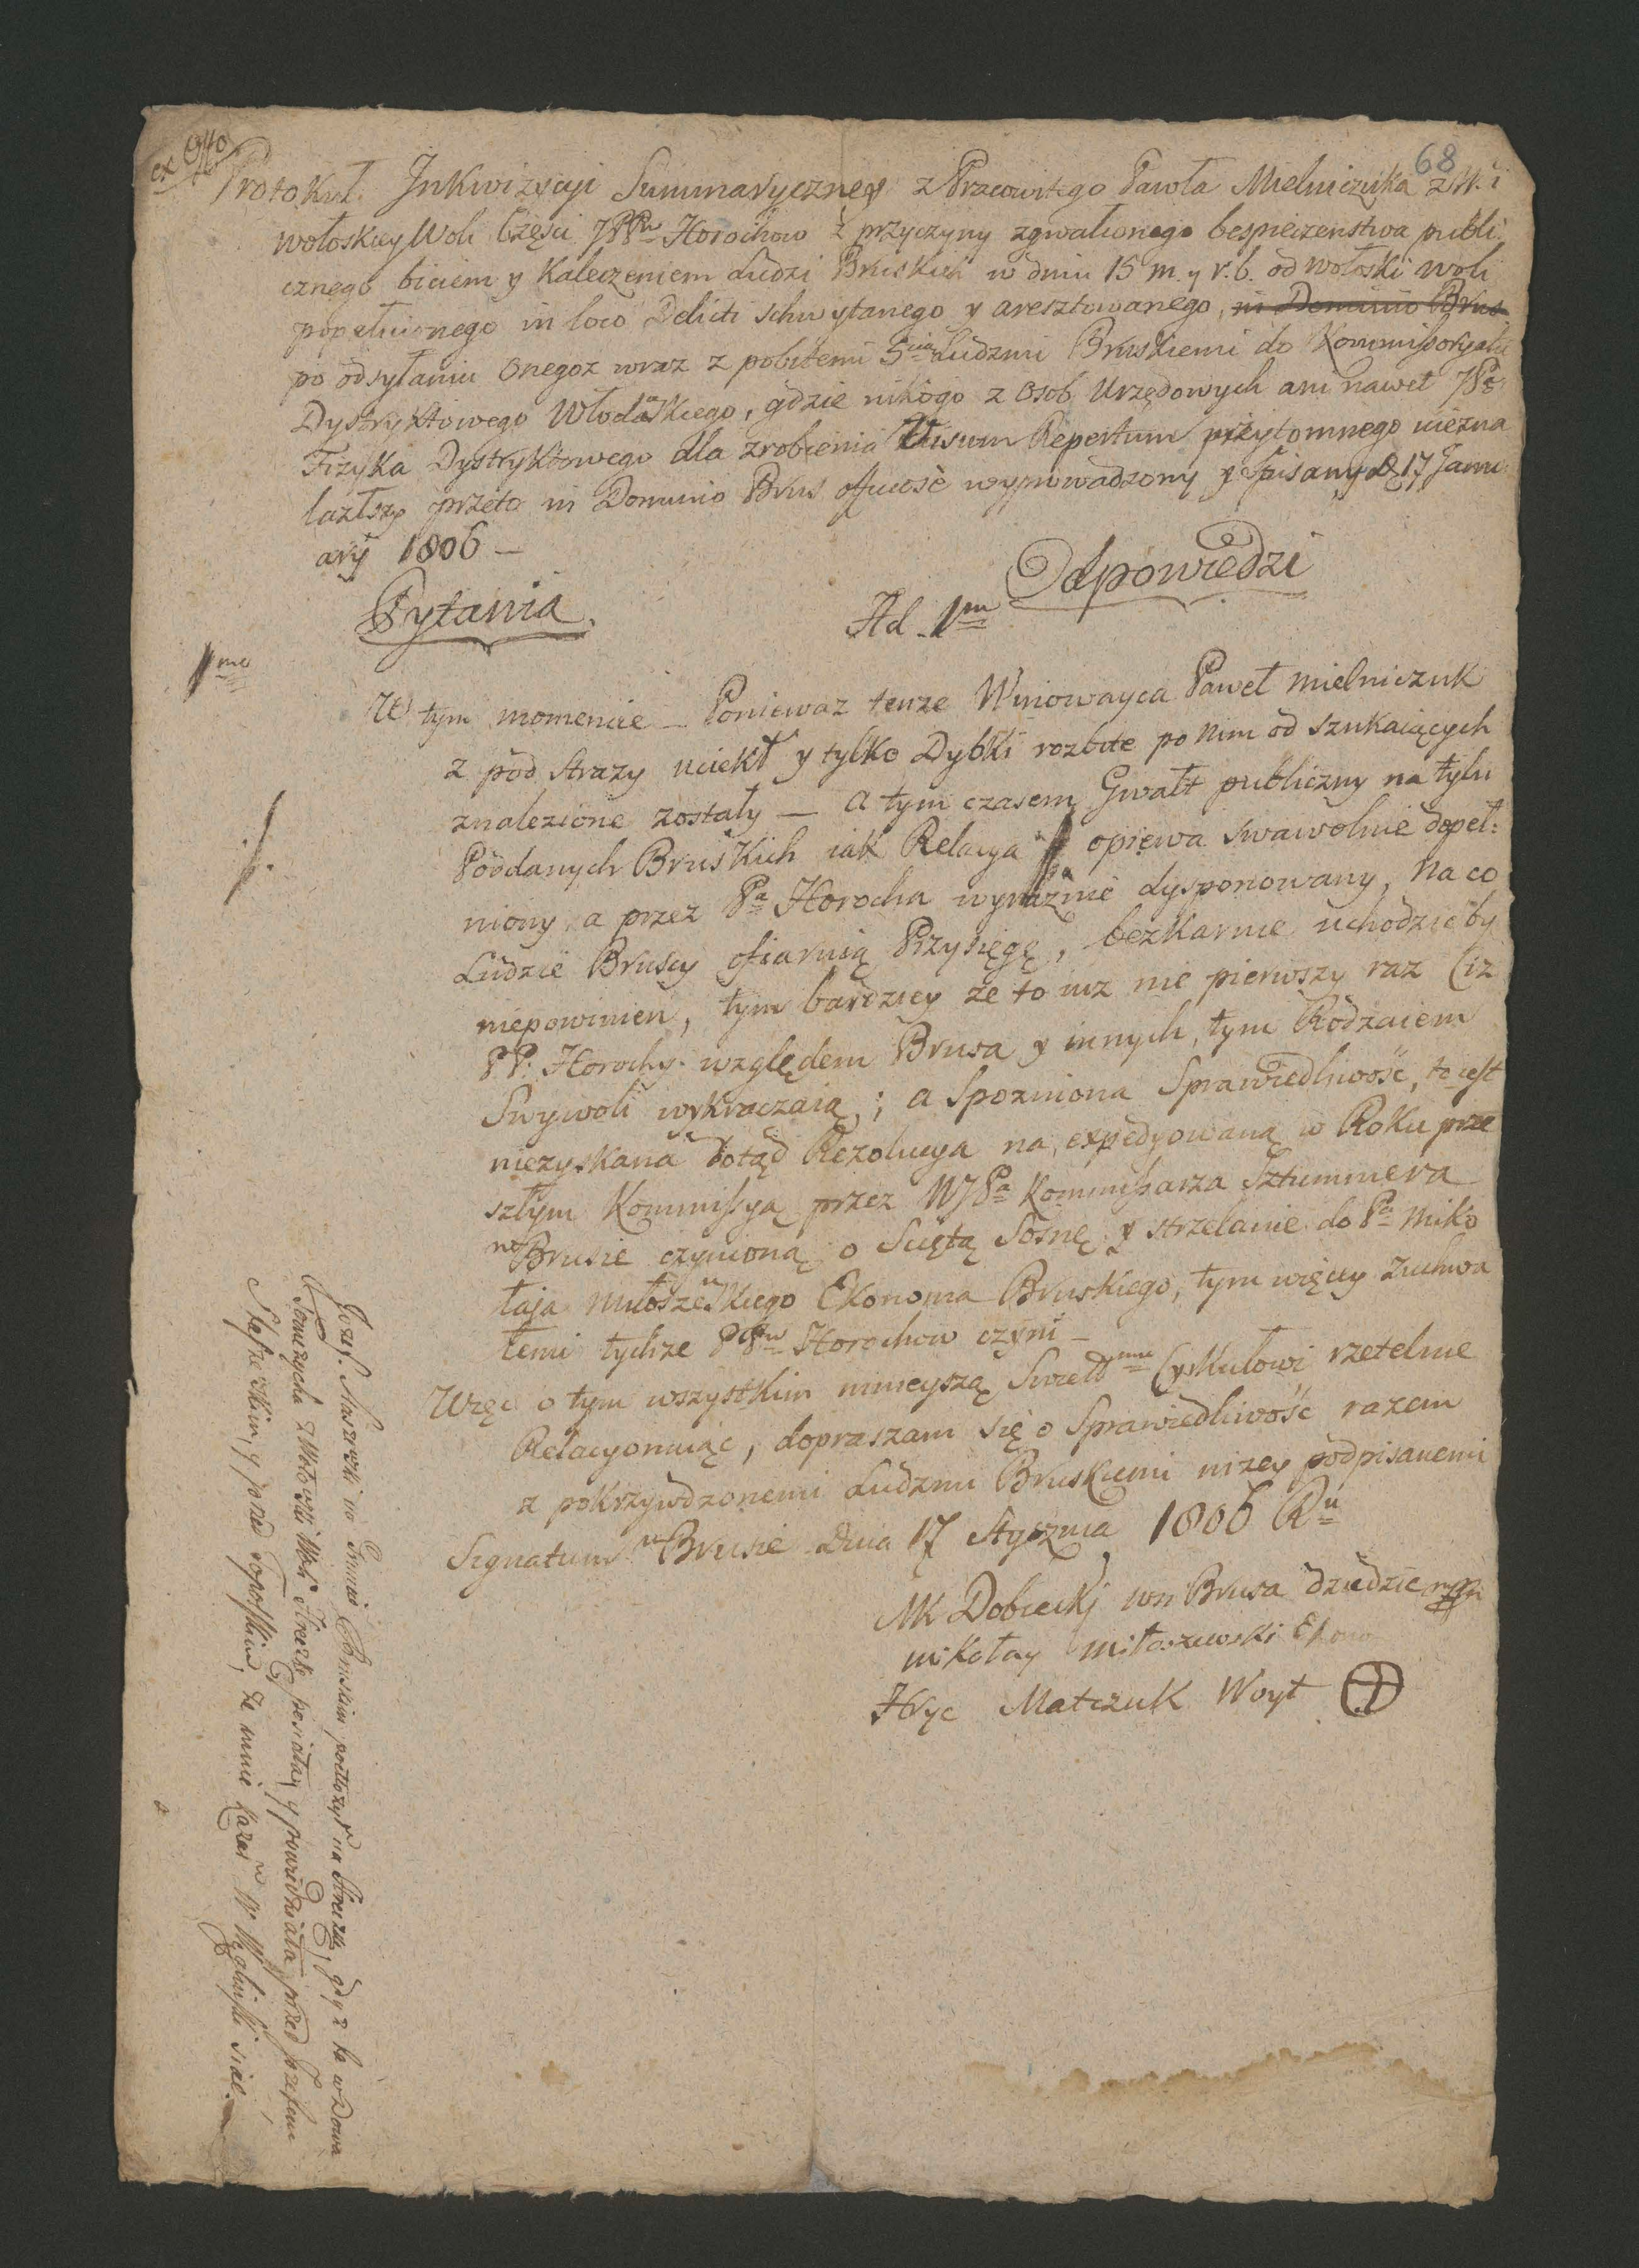 ex Offo
68
Protokuł Inkwizycyi Summaryczney z Pracowitego Pawła Mielniczuka z Wsi
wołoskiey Woli Części JPPw Horochow z przyczyny zgwałconego bespieczenstwa publi
cznego biciem y Kaleczeniem Ludzi Bruskich w dniu 15 m. y r. b. od wołoski woli
popełnionego in loco Delicti schwytanego y aresztowanego, in Dominio Brus
po odsyłaniu onegoz wraz z pobitemi 5cią Ludzmi Bruskiemi do Kommissoryatu
Dystryktowego Włodaskiego, gdzie nikogo z Osob Urzędowych ani nawet JPa
Fizyka Dystryktowego dla zrobienia Visum Repertum przytomnego niezna
lazłszy przeto in Dominio Brus wyprowadzony y spisany D. 17 Janu
arij 1806 –
Pytania.
Odpowiedzi
Ad 1m
1mo
W tym momencie – Poniewaz tenze Winowayca Paweł Mielniczuk
z pod strazy uciekł y tylko Dybki rozbite po nim od szukaiących
znalezione zostały — a tym czasem Gwałt publiczny na tylu
Poddanych Bruskich iak Relacya opiewa swawolnie dopeł:
niony a przez Pa Horocha wyraznie dysponowany, na co
Ludzie Bruscy ofiaruią Przysięgę, bezkarnie uchodzić by
niepowinien, tym bardziey że to iuz nie pierwszy raz (iz
PP: Horochy względem Brusa y innych, tym Rodzaiem
Swywoli wykraczaią; a Spozniona Sprawiedliwość, to iest
niezyskana dotąd Rezolucya na expedyowaną w Roku prze
szłym Kommissyą przez WJPa Kommissarza Sztummera
w Brusie czynioną o Sciętą Sosnę y strzelanie do Pa Miko
łaja Miłoszewskiego Ekonoma Bruskiego, tym więcey zuchwa
łemi tychze PPw Horochow czyni –
Więc o tym wszystkim ninieyszą Swietmu Cyrkułowi rzetelnie
Relacyonuiąc, dopraszam się o Sprawiedliwość razem
z pokrzywdzonemi Ludzmi Bruskiemi nizey podpisanemi
Signatum w Brusie Dnia 17 Stycznia 1806 Ru
MK Dobiecki wsi Brusa dziedzic mp
Mikołay Miłoszewski Ekono
Hryc Matczuk Woyt
Jozef Staszewski w Gminie Bruskim położył na Strazu, gdyz ta wdowa
Tomczycha z Wołoski Woli Strazki posiałay y powiedziała przed Jozefem
Staszewskim, y przed Sopolskim, ze mnie kazał W. Węgliński siac.